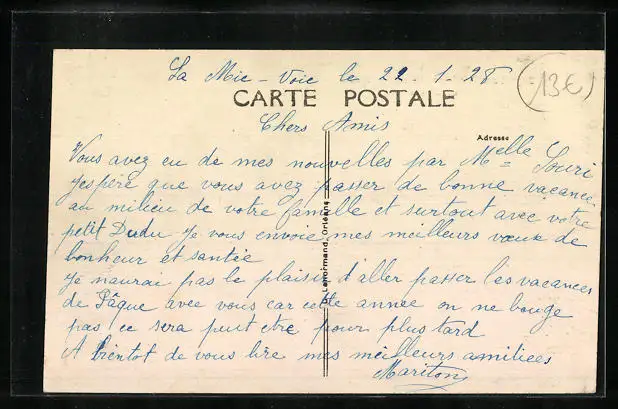 La Mie-Voie le 22-1-28
13€
CARTE POSTALE
Chers Amis
Adresse
Vous avez eu de mes nouvelles par Melle Souri
j'espère que vous avez passer de bonne vacance
au milieu de votre famille et surtout avec votre
petit Dudu je vous envoie mes meilleurs vœux de
bonheur et santée
je n'aurai pas le plaisir d'aller passer les vacances
de Pâque avec vous car cette annee on ne bouge
pas ce sera peut etre pour plus tard
A bientot de vous lire mes meilleurs amitiées
Mariton
Lenormand, Orléans